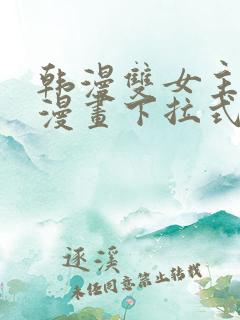 韩漫雙女主
漫畫下拉式
逐溪
未经同意禁止转载